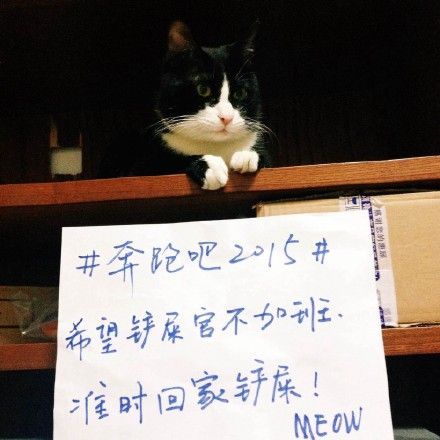 #奔跑吧2015#
希望铲屎官不加班.
准时回家铲屎!
MEOW